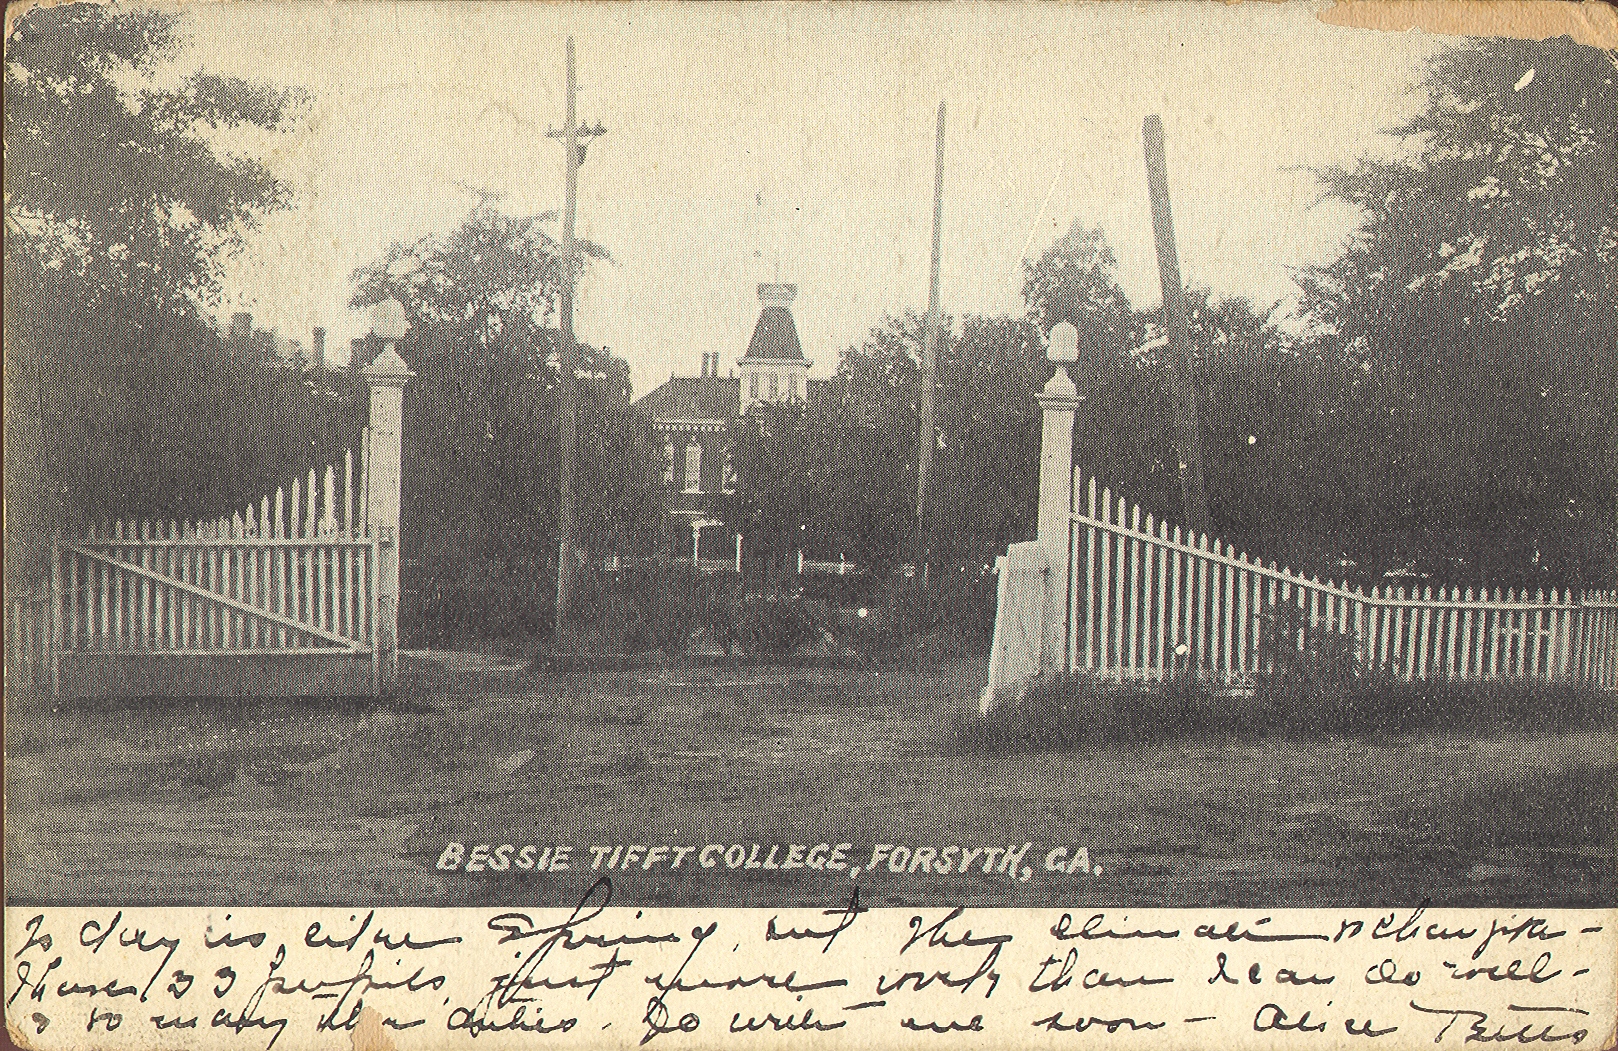 BESSIE TIFFT COLLEGE, FORSYTH, GA.
To day is like Spring, but the climate is changea-
I have 33 pupils, just more work than I can do well -
& so many other duties. Do write me soon - Alice Betts